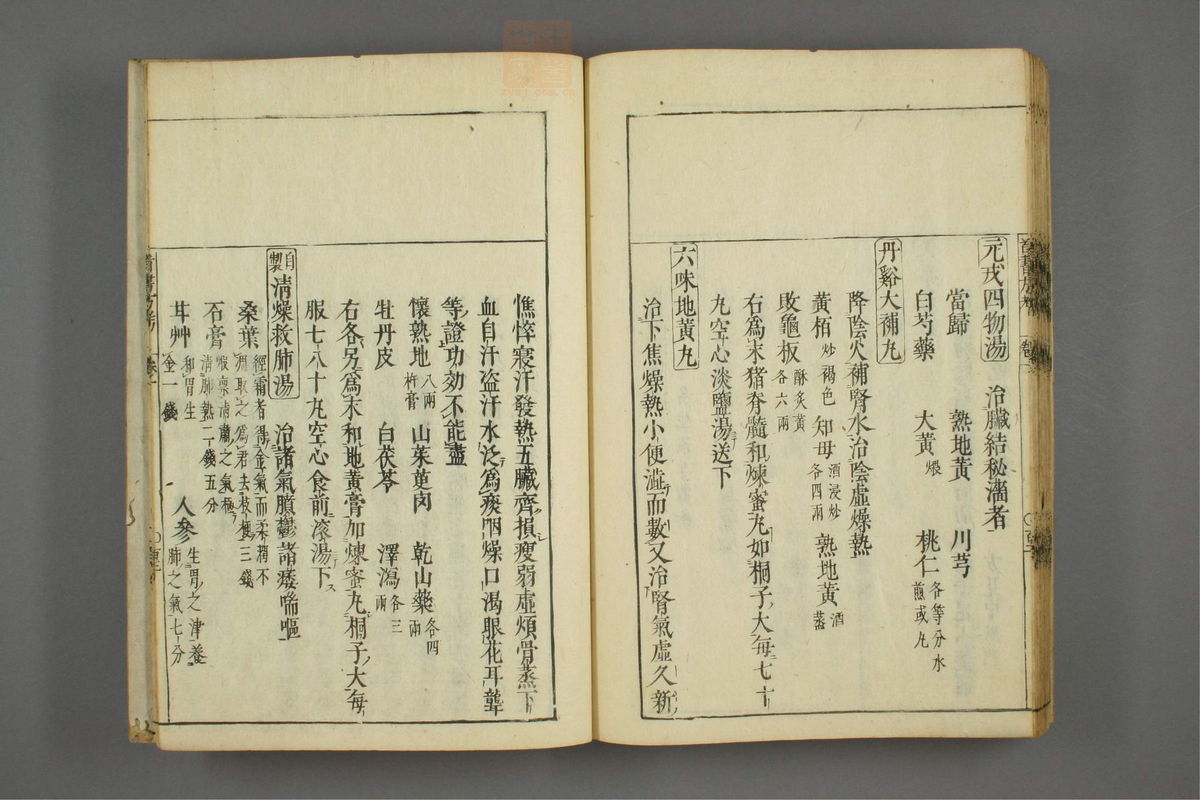 元戎四物湯　治臟結秘濇者
當歸　熟地黃　川芎
白芍藥　大黃煨　桃仁各等分水煎或丸
丹谿大補丸
降陰火補腎水治陰虛燥熱
黃栢炒褐色　知母酒浸炒各四兩　熟地黃酒蒸
敗龜板酥炙黃各六兩
右爲末猪脊髓和煉蜜丸如桐子大每七十
九空心淡鹽湯送下
六味地黃丸
治下焦燥熱小便澁而數又治腎氣虛久新
憔悴寢汗發熱五臟齊損瘦弱虛煩骨蒸下
血自汗盜汗水泛爲痰咽燥口渴眼花耳聾
等證功効不能盡
懷熟地八兩杵膏　山茱萸肉　乾山藥各四兩
牡丹皮　白茯苓　澤瀉各三兩
右各另爲末和地黃膏加煉蜜丸桐子大每
服七八十丸空心食前滾湯下
自製清燥救肺湯　治諸氣膹鬱諸痿喘嘔
桑葉經霜者得金氣而柔潤不凋取之爲君去枝梗三錢
石膏稟清肅之氣極清肺熱二錢五分　人參生胃之津養肺之氣七分
甘艸和胃生金一錢